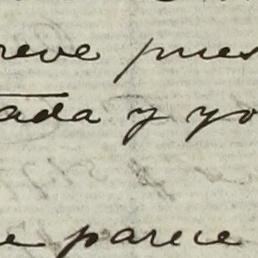 reve pues
ada y yo
e parece